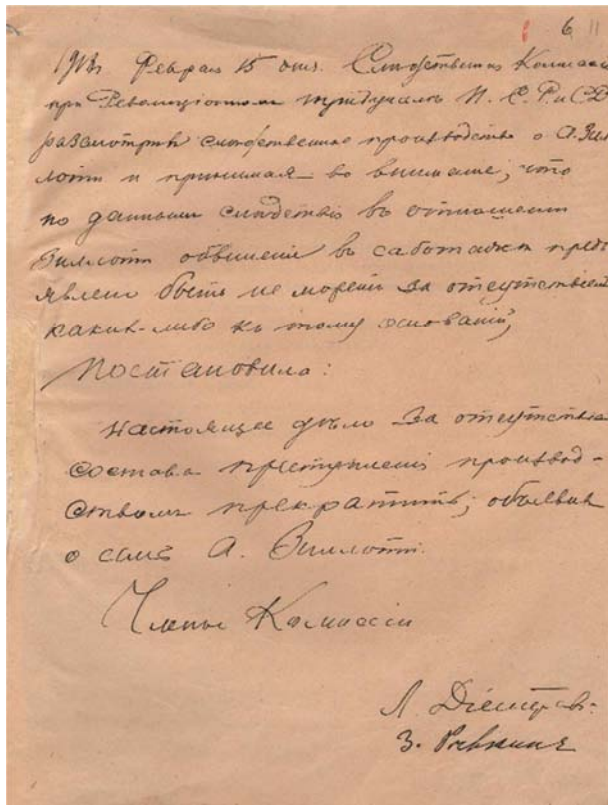 6 11
1918 г. Февраля 15 дня. Следственная Комиссія
при Революціонномъ трибуналѣ П. С. Р. и С. Д.
разсмотрѣвъ слѣдственное производство о А. Зил-
лоти и принимая во вниманіе, что
по даннымъ слѣдствія въ отношеніи
Зиллоти обвиненіе въ саботажѣ предъ-
явлено быть не можетъ за отсутствіемъ
какихъ-либо къ тому основаній,
Постановила:
Настоящее дѣло за отсутствіемъ
состава преступленія производ-
ствомъ прекратить, объявивъ
о семъ А. Зиллоти.
Члены Комиссіи
Л.
З.